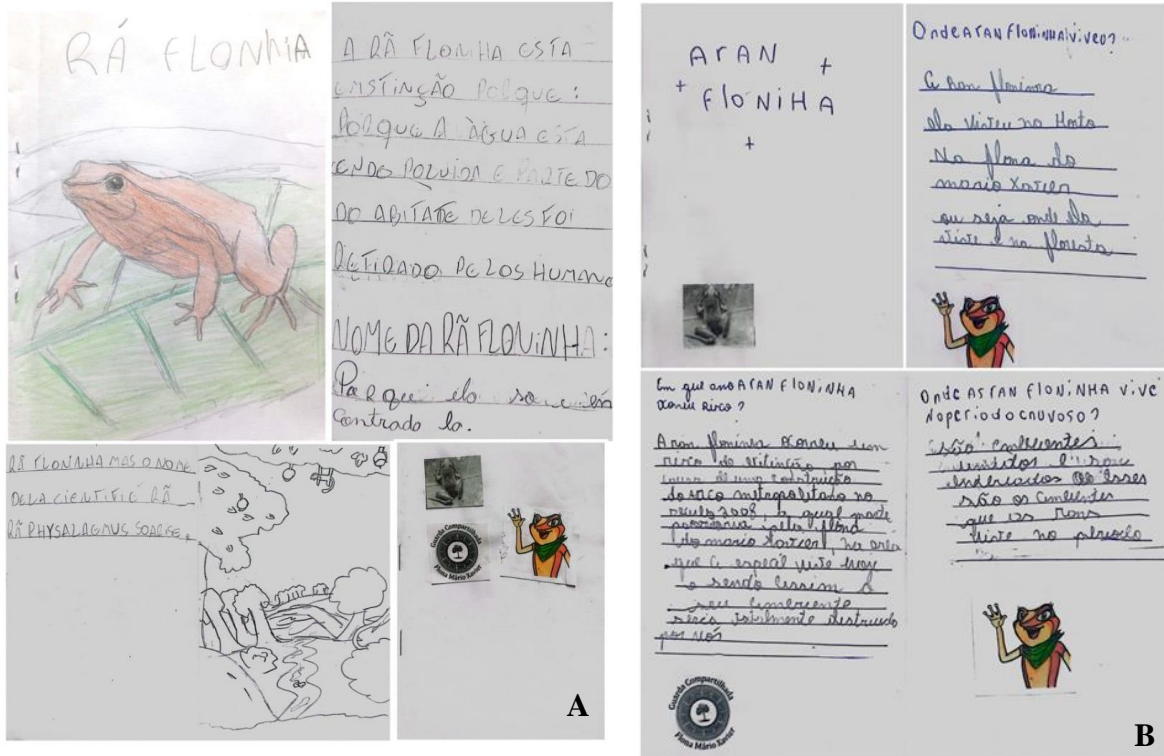 RÁ FLONHIA
A RÃ FLONHA ESTA
EMSTINÇÃO POLQUE:
POLQUE A ÀGUA ESTA
ENDO POLUIDA E PARTE DO
DO ABITATE DELES FOI
RETIRADO PELOS HUMANO
NOME DA RÃ FLOUINHA:
Porque ela so
contrado la.
RÃ FLONINHA MAS O NOME
DELA CIENTIFIC RÃ
RÃ PHYSALAGMUS SOARGE.
Guarda Compartilhada
Flona Mário Xavier
A
ArAN
FloNiHA
Onde A rAn FloNiNHA viveo?
A Ran floninha
ela viveu no Horto
Na flona do
mario Xavier
ou seja onde ela
vive e na floresta
Em que ano A rAN FloNiNHA
correu Risco?
A ran floninha correu um
risco de extinção por
causa de uma construção
do arco metropolitano no
século 2008, a qual parte
passaria pela flona
do mario Xavier, na area
que a espeal vive hoje
e sendo assim o
seu
seria totalmente destruido
por nós
Guarda Compartilhada
Flona Mário Xavier
Onde AS rAN FloNiNHA ViVE
No periodo cHuvoso?
são
são os
que as Rans
vive no periodo
B